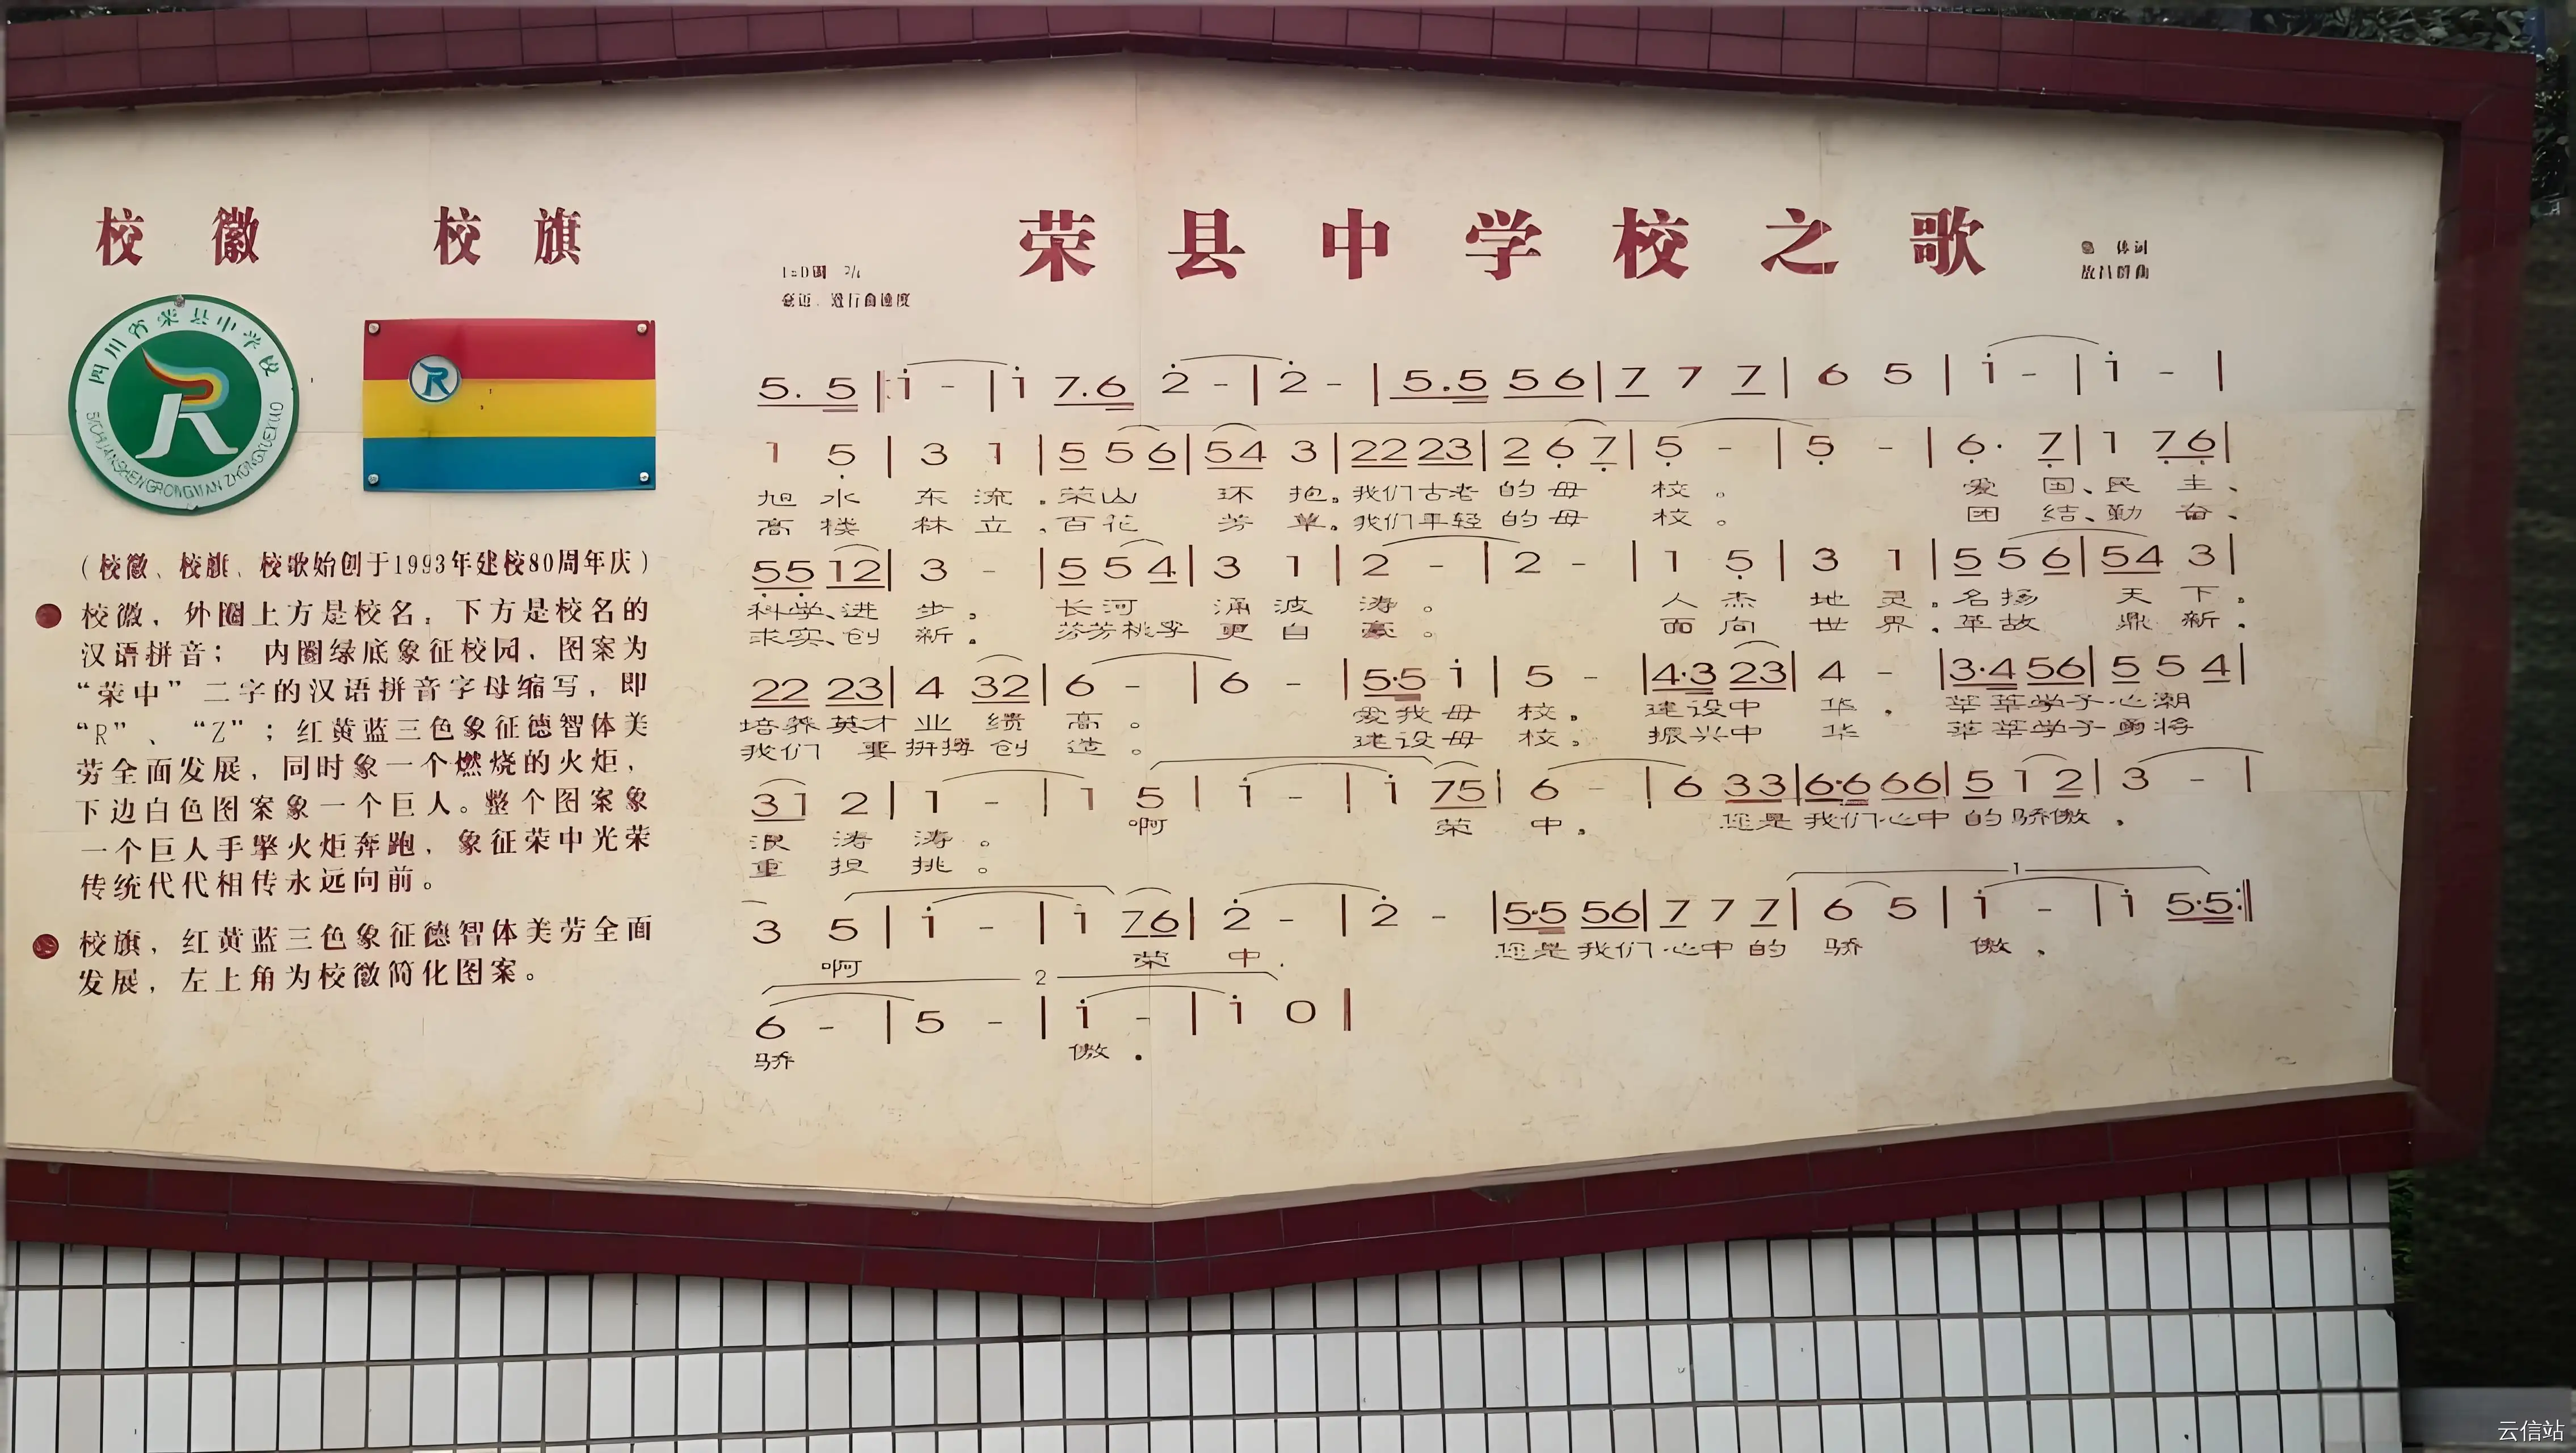 校徽 校旗
四川省荣县中学校
(校徽、校旗、校歌始创于1993年建校80周年庆)
校徽，外圈上方是校名，下方是校名的
汉语拼音； 内圈绿底象征校园，图案为
“荣中”二字的汉语拼音字母缩写，即
“R”、“Z”；红黄蓝三色象征德智体美
劳全面发展，同时象一个燃烧的火炬，
下边白色图案象一个巨人。整个图案象
一个巨人手擎火炬奔跑，象征荣中光荣
传统代代相传永远向前。
校旗，红黄蓝三色象征德智体美劳全面
发展，左上角为校徽简化图案。
荣县中学校之歌
5. 5 |: i - | i 7.6 2 - | 2 - | 5.5 5 6 | 7 7 7 | 6 5 | i - | i - |
1 5 | 3 1 | 5 5 6 | 5 4 3 | 2 2 2 3 | 2 6 7 | 5 - | 5 - | 6· 7 | 1 7 6 |
旭水 东流，荣山 环抱。我们古老的母校。 爱国、民主、
高楼 林立，百花 芳草。我们年轻的母校。 团结、勤奋、
5 5 1 2 | 3 - | 5 5 4 | 3 1 | 2 - | 2 - | 1 5 | 3 1 | 5 5 6 | 5 4 3 |
科学、进步。 长河 涌波涛。 人杰地灵，名扬 天下。
求实、创新。 芬芳桃李 更自豪。 面向世界，革故 鼎新。
2 2 2 3 | 4 3 2 | 6 - | 6 - | 5·5 i | 5 - | 4·3 2 3 | 4 - | 3·4 5 6 | 5 5 4 |
培养英才 业绩 高。 爱我母校， 建设中华， 莘莘学子心潮
我们 要拼搏 创造。 建设母校， 振兴中华 莘莘学子勇将
3 1 2 | 1 - | 1 5 | i - | i 7 5 | 6 - | 6 3 3 | 6·6 6 6 | 5 1 2 | 3 - |
浪涛涛。 啊 荣中， 您是我们心中的骄傲，
重担挑。
3 5 | i - | i 7 6 | 2 - | 2 - | 5·5 5 6 | 7 7 7 | 6 5 | i - | i 5·5 :|
啊 荣中， 您是我们心中的骄傲，
6 - | 5 - | i - | i 0 |
骄 傲。
云信站